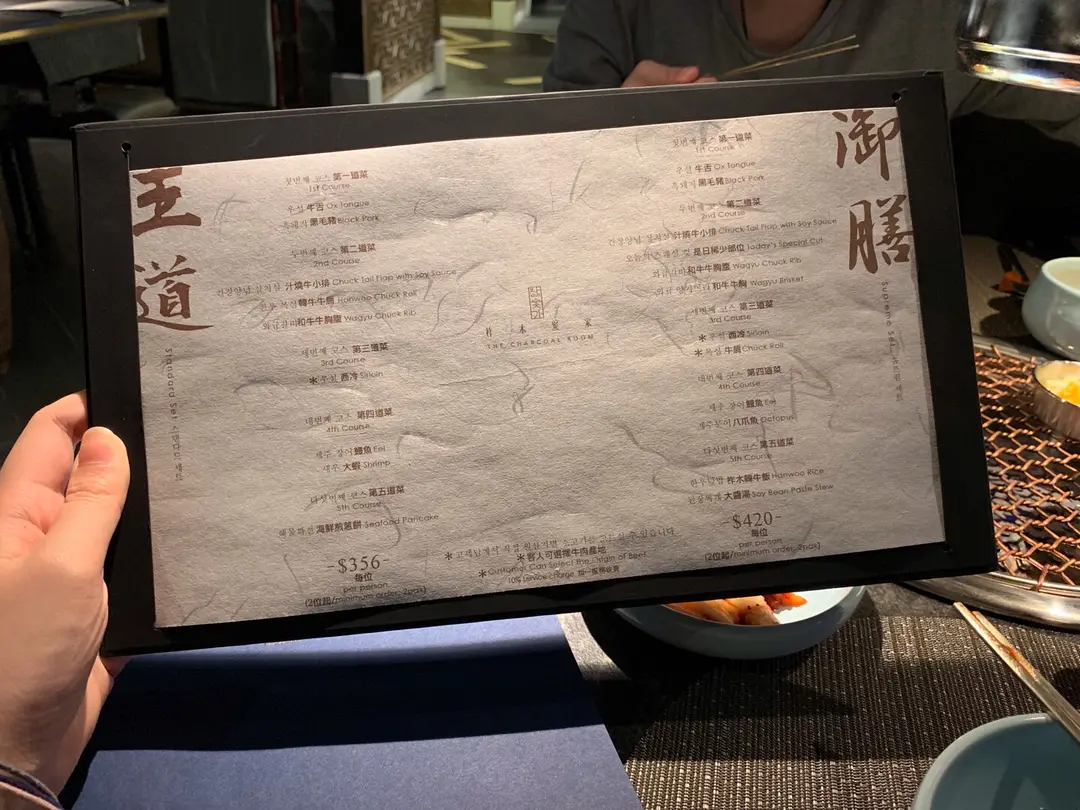 王道
Standard Set 스탠다드 세트
첫번째 코스 第一道菜
1st Course
우설 牛舌 Ox Tongue
흑돼지 黑毛豬 Black Pork
두번째 코스 第二道菜
2nd Course
간장양념 살치살 汁燒牛小排 Chuck Tail Flap with Soy Sauce
한우 목심 韓牛牛肩 Hanwoo Chuck Roll
와규갈비 和牛牛胸肩 Wagyu Chuck Rib
세번째 코스 第三道菜
3rd Course
* 등심 西冷 Sirloin
네번째 코스 第四道菜
4th Course
제주 장어 鰻魚 Eel
새우 大蝦 Shrimp
다섯번째 코스 第五道菜
5th Course
해물파전 海鮮煎薯餅 Seafood Pancake
-$356-
每位
per person
(2位起/minimum order, 2pax)
柞木炭家
THE CHARCOAL ROOM
* 고객님께서 직접 원산지별 소고기를 고르실 수 있습니다.
* 客人可選擇牛肉產地
* Customer Can Select the Origin of Beef
10% service charge 加一服務收費
御膳
Supreme Set 수프림 세트
첫번째 코스 第一道菜
1st Course
우설 牛舌 Ox Tongue
흑돼지 黑毛豬 Black Pork
두번째 코스 第二道菜
2nd Course
간장양념 살치살 汁燒牛小排 Chuck Tail Flap with Soy Sauce
오늘의 스페셜 컷 是日稀少部位 Today's Special Cut
와규갈비 和牛牛胸肩 Wagyu Chuck Rib
와규 和牛牛胸 Wagyu Brisket
세번째 코스 第三道菜
3rd Course
* 등심 西冷 Sirloin
* 목심 牛肩 Chuck Roll
네번째 코스 第四道菜
4th Course
제주 장어 鰻魚 Eel
제주문어 八爪魚 Octopus
다섯번째 코스 第五道菜
5th Course
한우덮밥 柞木韓牛飯 Hanwoo Rice
된장찌개 大醬湯 Soy Bean Paste Stew
-$420-
每位
per person
(2位起/minimum order, 2pax)